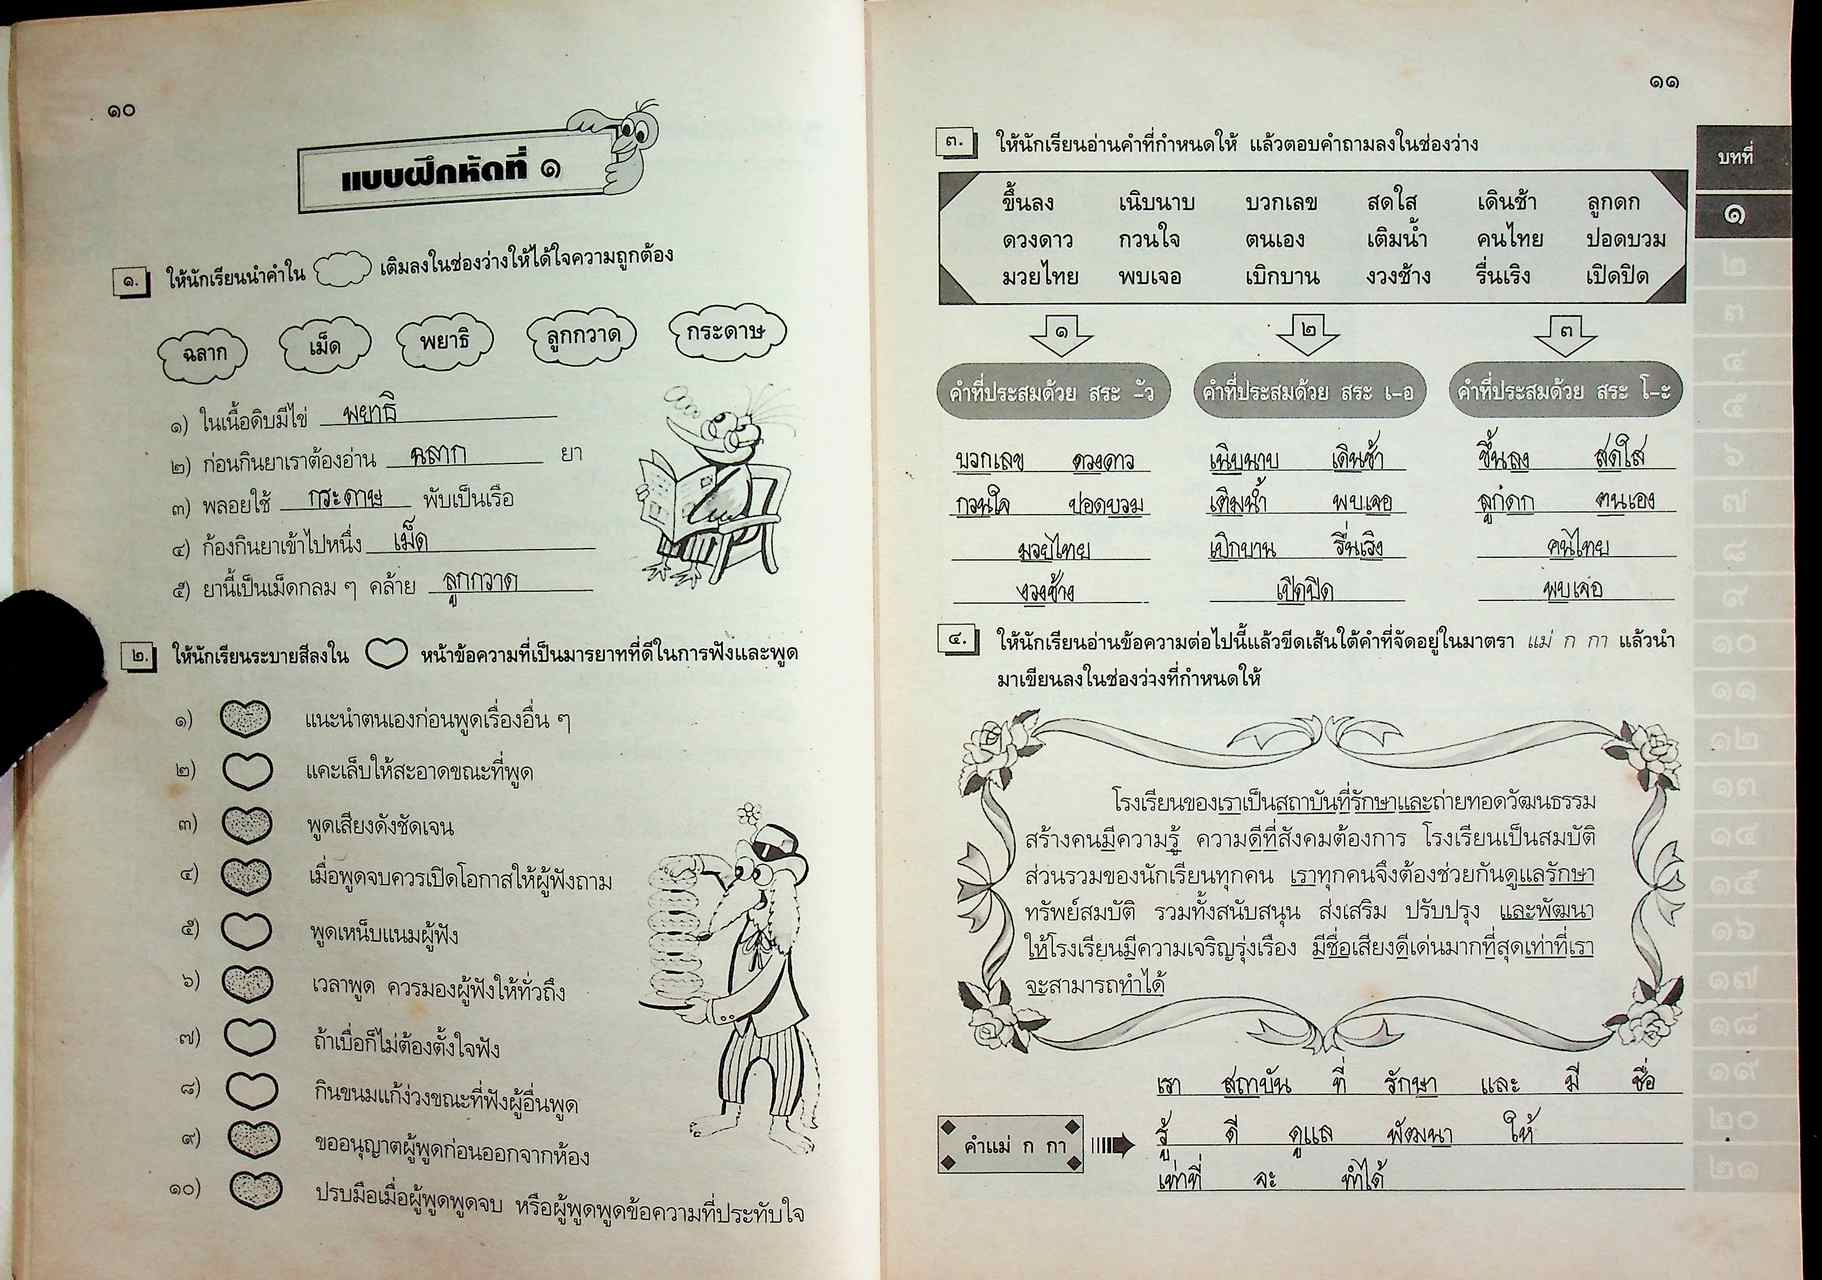 ๑๐
แบบฝึกหัดที่ ๑
๑. ให้นักเรียนนำคำใน เติมลงในช่องว่างให้ได้ใจความถูกต้อง
ฉลาก เม็ด พยาธิ ลูกกวาด กระดาษ
๑) ในเนื้อดิบมีไข่ พยาธิ
๒) ก่อนกินยาเราต้องอ่าน ฉลาก ยา
๓) พลอยใช้ กระดาษ พับเป็นเรือ
๔) ก้องกินยาเข้าไปหนึ่ง เม็ด
๕) ยานี้เป็นเม็ดกลม ๆ คล้าย ลูกกวาด
๒. ให้นักเรียนระบายสีลงใน หน้าข้อความที่เป็นมารยาทที่ดีในการฟังและพูด
๑) แนะนำตนเองก่อนพูดเรื่องอื่น ๆ
๒) แคะเล็บให้สะอาดขณะที่พูด
๓) พูดเสียงดังชัดเจน
๔) เมื่อพูดจบควรเปิดโอกาสให้ผู้ฟังถาม
๕) พูดเหน็บแนมผู้ฟัง
๖) เวลาพูด ควรมองผู้ฟังให้ทั่วถึง
๗) ถ้าเบื่อก็ไม่ต้องตั้งใจฟัง
๘) กินขนมแก้ง่วงขณะที่ฟังผู้อื่นพูด
๙) ขออนุญาตผู้พูดก่อนออกจากห้อง
๑๐) ปรบมือเมื่อผู้พูดพูดจบ หรือผู้พูดพูดข้อความที่ประทับใจ
๑๑
๓. ให้นักเรียนอ่านคำที่กำหนดให้ แล้วตอบคำถามลงในช่องว่าง
ขึ้นลง เนิบนาบ บวกเลข สดใส เดินช้า ลูกดก
ดวงดาว กวนใจ ตนเอง เติมน้ำ คนไทย ปอดบวม
มวยไทย พบเจอ เบิกบาน งวงช้าง รื่นเริง เปิดปิด
๑ ๒ ๓
คำที่ประสมด้วย สระ -ัว คำที่ประสมด้วย สระ เ-อ คำที่ประสมด้วย สระ โ-ะ
บวกเลข ดวงดาว เนิบนาบ เดินช้า ขึ้นลง สดใส
กวนใจ ปอดบวม เติมน้ำ พบเจอ ลูกดก ตนเอง
มวยไทย เบิกบาน รื่นเริง คนไทย
งวงช้าง เปิดปิด พบเจอ
๔. ให้นักเรียนอ่านข้อความต่อไปนี้แล้วขีดเส้นใต้คำที่จัดอยู่ในมาตรา แม่ ก กา แล้วนำ
มาเขียนลงในช่องว่างที่กำหนดให้
โรงเรียนของเราเป็นสถาบันที่รักษาและถ่ายทอดวัฒนธรรม
สร้างคนมีความรู้ ความดีที่สังคมต้องการ โรงเรียนเป็นสมบัติ
ส่วนรวมของนักเรียนทุกคน เราทุกคนจึงต้องช่วยกันดูแลรักษา
ทรัพย์สมบัติ รวมทั้งสนับสนุน ส่งเสริม ปรับปรุง และพัฒนา
ให้โรงเรียนมีความเจริญรุ่งเรือง มีชื่อเสียงดีเด่นมากที่สุดเท่าที่เรา
จะสามารถทำได้
เรา สถาบัน ที่ รักษา และ มี ชื่อ
คำแม่ ก กา รู้ ดี ดูแล พัฒนา ให้
เท่าที่ จะ ทำได้
บทที่
๑
๒
๓
๔
๕
๖
๗
๘
๙
๑๐
๑๑
๑๒
๑๓
๑๔
๑๕
๑๖
๑๗
๑๘
๑๙
๒๐
๒๑